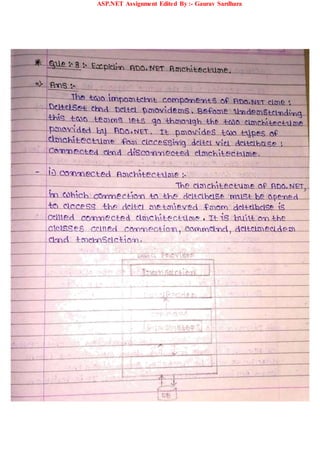 ASP.NET Assignment Edited By :- Gaurav Sardhara
* Que :- 8 :- Explain ADO.NET Architecture.
=> Ans :-
The two important components of ADO.NET are :
DataSet and Data providers. Before understanding
this two terms lets go through the two architecture
provided by ADO.NET. It provides two types of
architecture for accessing data via database :
connected and disconnected architecture.
- 1) connected Architecture :-
The architecture of ADO.NET,
in which connection to the database must be opened
to access the data retrieved from database is
called connected architecture. It is built on the
classes called connection, command, datareader
and transaction.
Data Provider
Transaction
DB